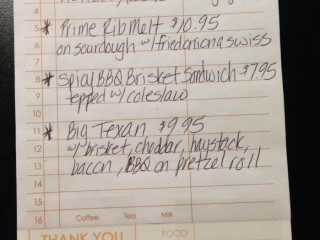 5
* Prime Rib Melt $10.95
6
on sourdough w/fried onion a swiss
7
8
* Spicy BBQ Brisket Sandwich $7.95
9
topped w/ coleslaw
10
11
* Big Texan $9.95
12
w/ brisket, cheddar, haystack,
13
bacon, BBQ on pretzel roll
14
15
16
Coffee Tea Milk
THANK YOU
FOOD